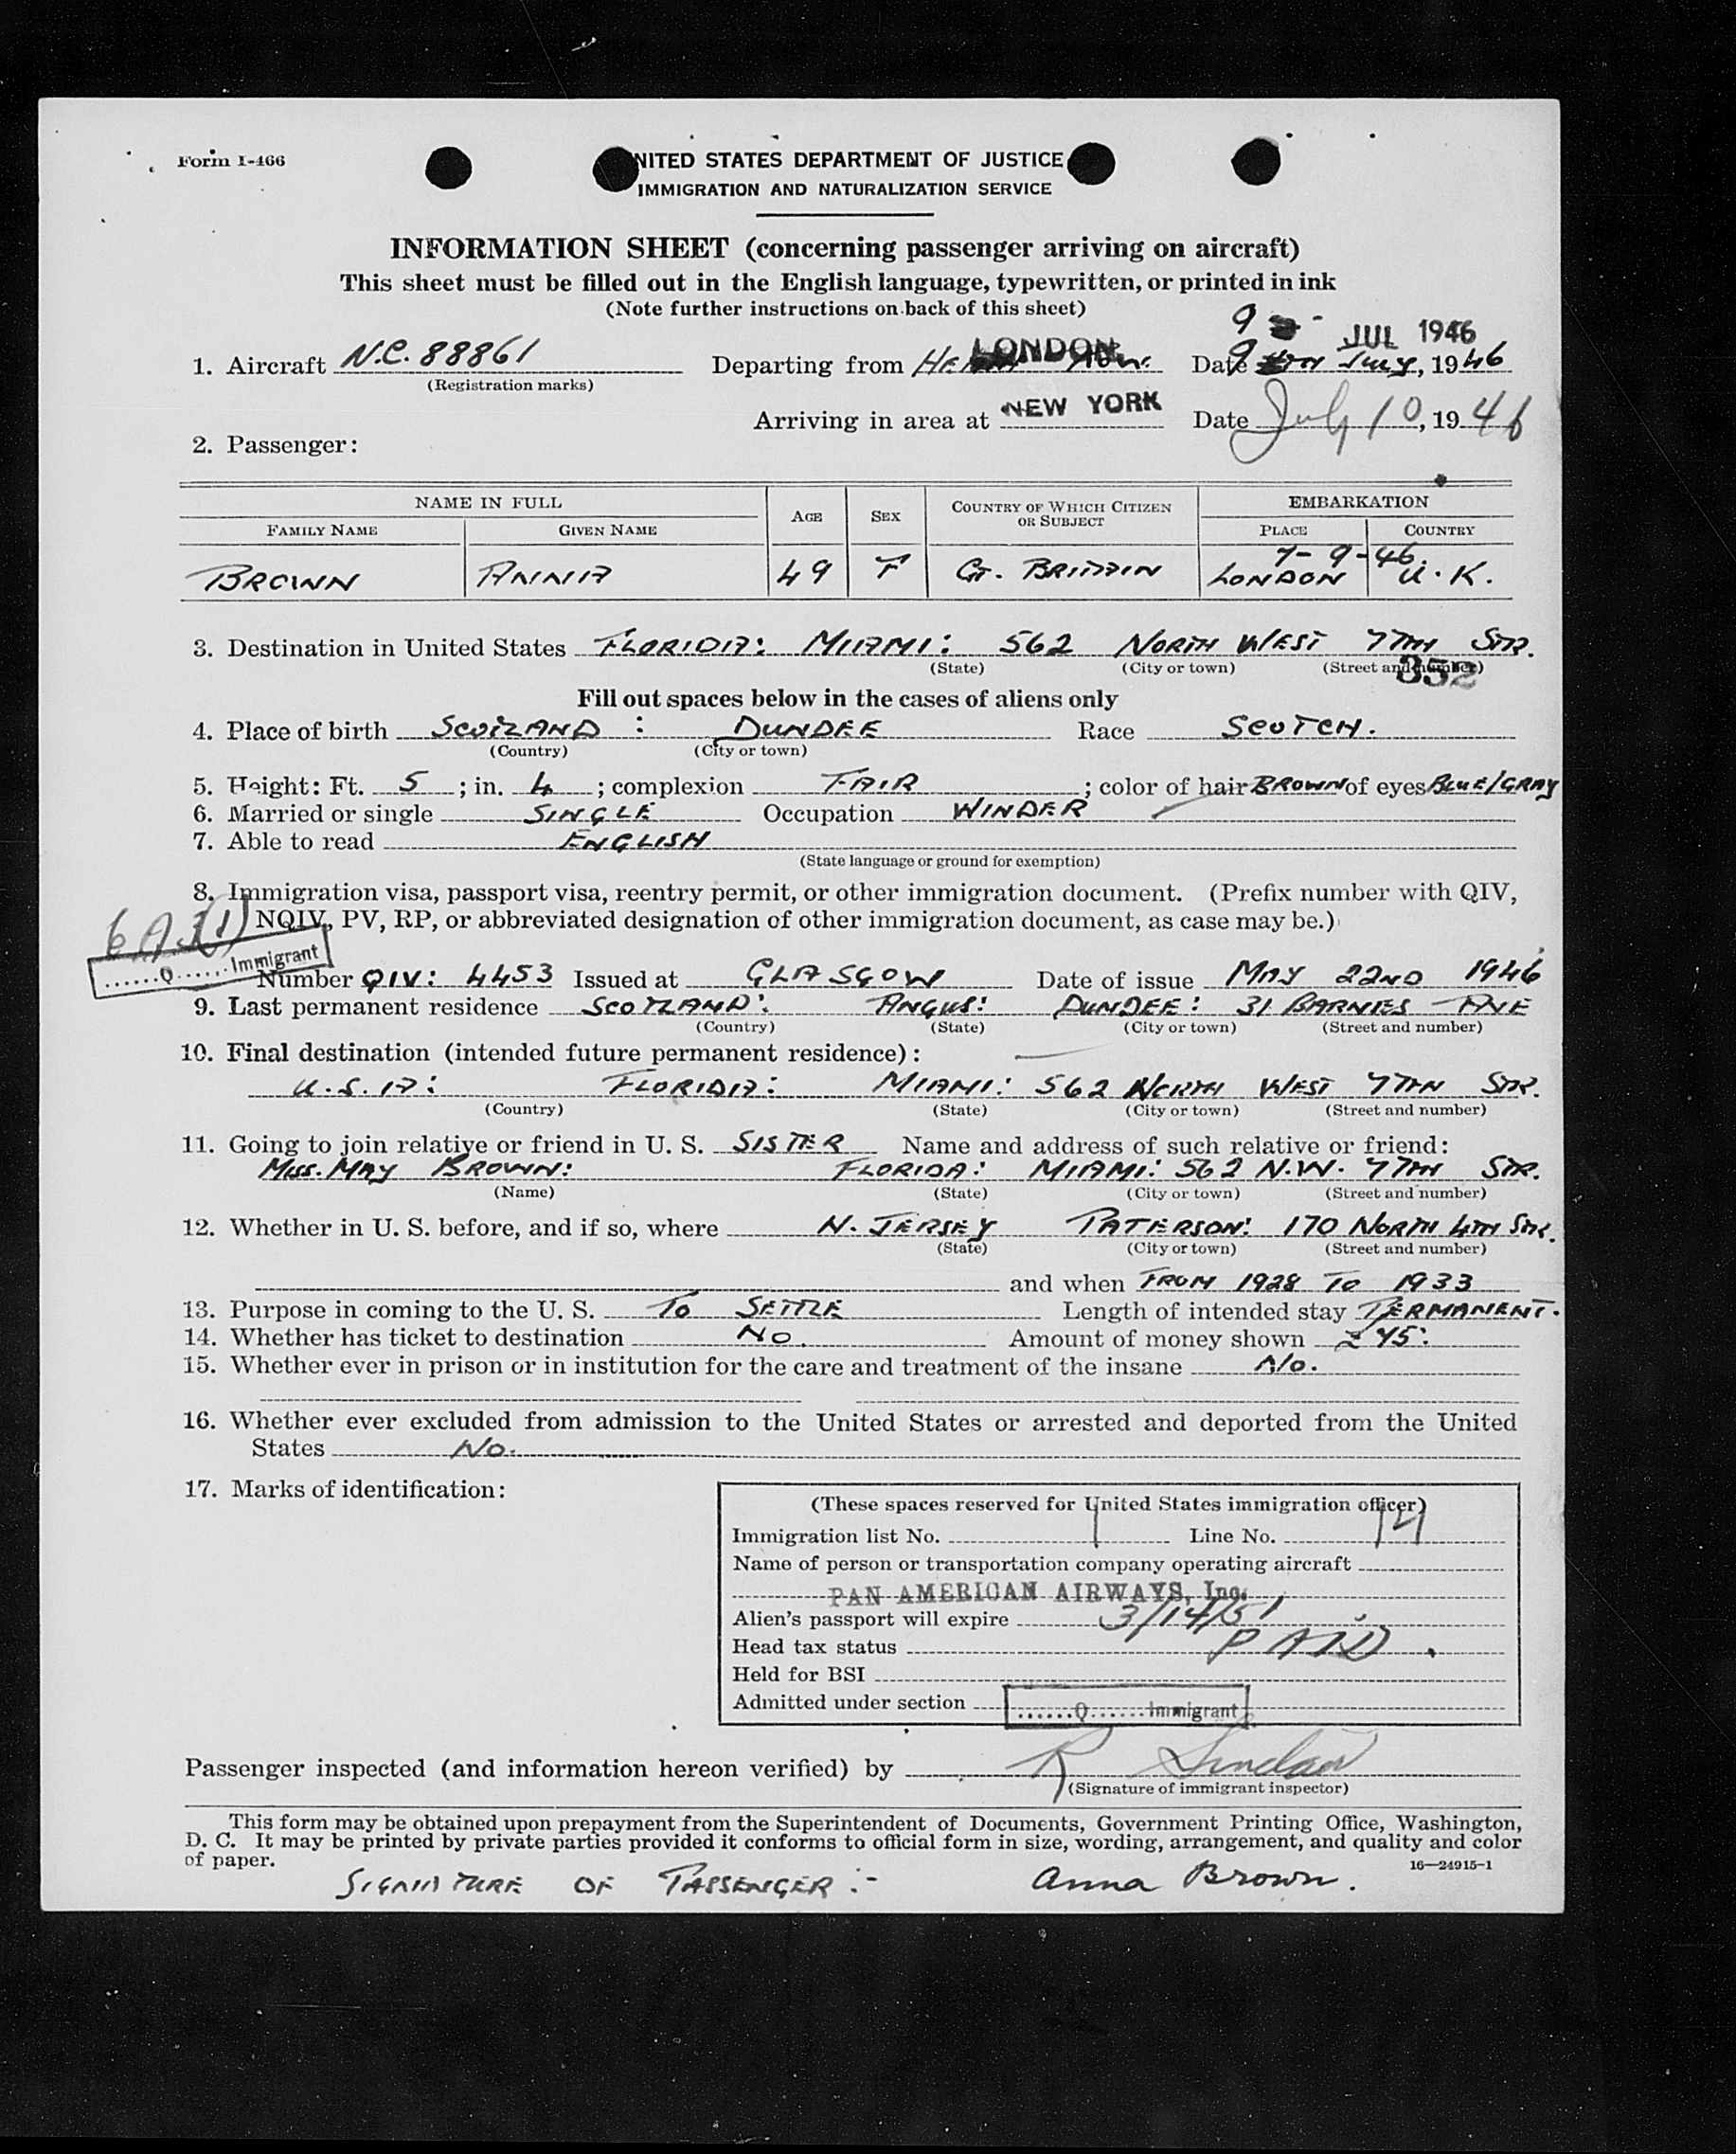 Form I-466
UNITED STATES DEPARTMENT OF JUSTICE
IMMIGRATION AND NATURALIZATION SERVICE
INFORMATION SHEET (concerning passenger arriving on aircraft)
This sheet must be filled out in the English language, typewritten, or printed in ink
(Note further instructions on back of this sheet)
9 JUL 1946
1. Aircraft N.C. 88861 Departing from LONDON Date 9 July, 1946
(Registration marks)
Arriving in area at NEW YORK Date July 10, 1946
2. Passenger:
NAME IN FULL AGE SEX COUNTRY OF WHICH CITIZEN OR SUBJECT EMBARKATION
FAMILY NAME GIVEN NAME PLACE COUNTRY
7-9-46
BROWN ANNA 49 F GT. BRITAIN LONDON U.K.
3. Destination in United States FLORIDA: MIAMI: 562 NORTH WEST 77TH STR.
(State) (City or town) (Street and number)
352
Fill out spaces below in the cases of aliens only
4. Place of birth SCOTLAND : DUNDEE Race SCOTCH.
(Country) (City or town)
5. Height: Ft. 5 ; in. 4 ; complexion FAIR ; color of hair BROWN of eyes BLUE/GRAY
6. Married or single SINGLE Occupation WINDER
7. Able to read ENGLISH
(State language or ground for exemption)
8. Immigration visa, passport visa, reentry permit, or other immigration document. (Prefix number with QIV,
NQIV, PV, RP, or abbreviated designation of other immigration document, as case may be.)
......Q......Immigrant
Number QIV: 4453 Issued at GLASGOW Date of issue MAY 22ND 1946
9. Last permanent residence SCOTLAND: ANGUS: DUNDEE: 31 BARNES AVE
(Country) (State) (City or town) (Street and number)
10. Final destination (intended future permanent residence):
U.S.A: FLORIDA: MIAMI: 562 NORTH WEST 77TH STR.
(Country) (State) (City or town) (Street and number)
11. Going to join relative or friend in U. S. SISTER Name and address of such relative or friend:
MISS. MAY BROWN: FLORIDA: MIAMI: 562 N.W. 77TH STR.
(Name) (State) (City or town) (Street and number)
12. Whether in U. S. before, and if so, where N. JERSEY PATERSON: 170 NORTH 4TH STR.
(State) (City or town) (Street and number)
and when FROM 1928 TO 1933
13. Purpose in coming to the U. S. TO SETTLE Length of intended stay PERMANENT.
14. Whether has ticket to destination NO. Amount of money shown £45:
15. Whether ever in prison or in institution for the care and treatment of the insane No.
16. Whether ever excluded from admission to the United States or arrested and deported from the United
States No.
17. Marks of identification:
(These spaces reserved for United States immigration officer)
Immigration list No. 1 Line No.
Name of person or transportation company operating aircraft
PAN AMERICAN AIRWAYS, Inc.
Alien's passport will expire 3/14/51
Head tax status PAID.
Held for BSI
Admitted under section ......Q......Immigrant
Passenger inspected (and information hereon verified) by R Sinclair
(Signature of immigrant inspector)
This form may be obtained upon prepayment from the Superintendent of Documents, Government Printing Office, Washington,
D. C. It may be printed by private parties provided it conforms to official form in size, wording, arrangement, and quality and color
of paper.
16—24915-1
SIGNATURE OF PASSENGER:- Anna Brown.